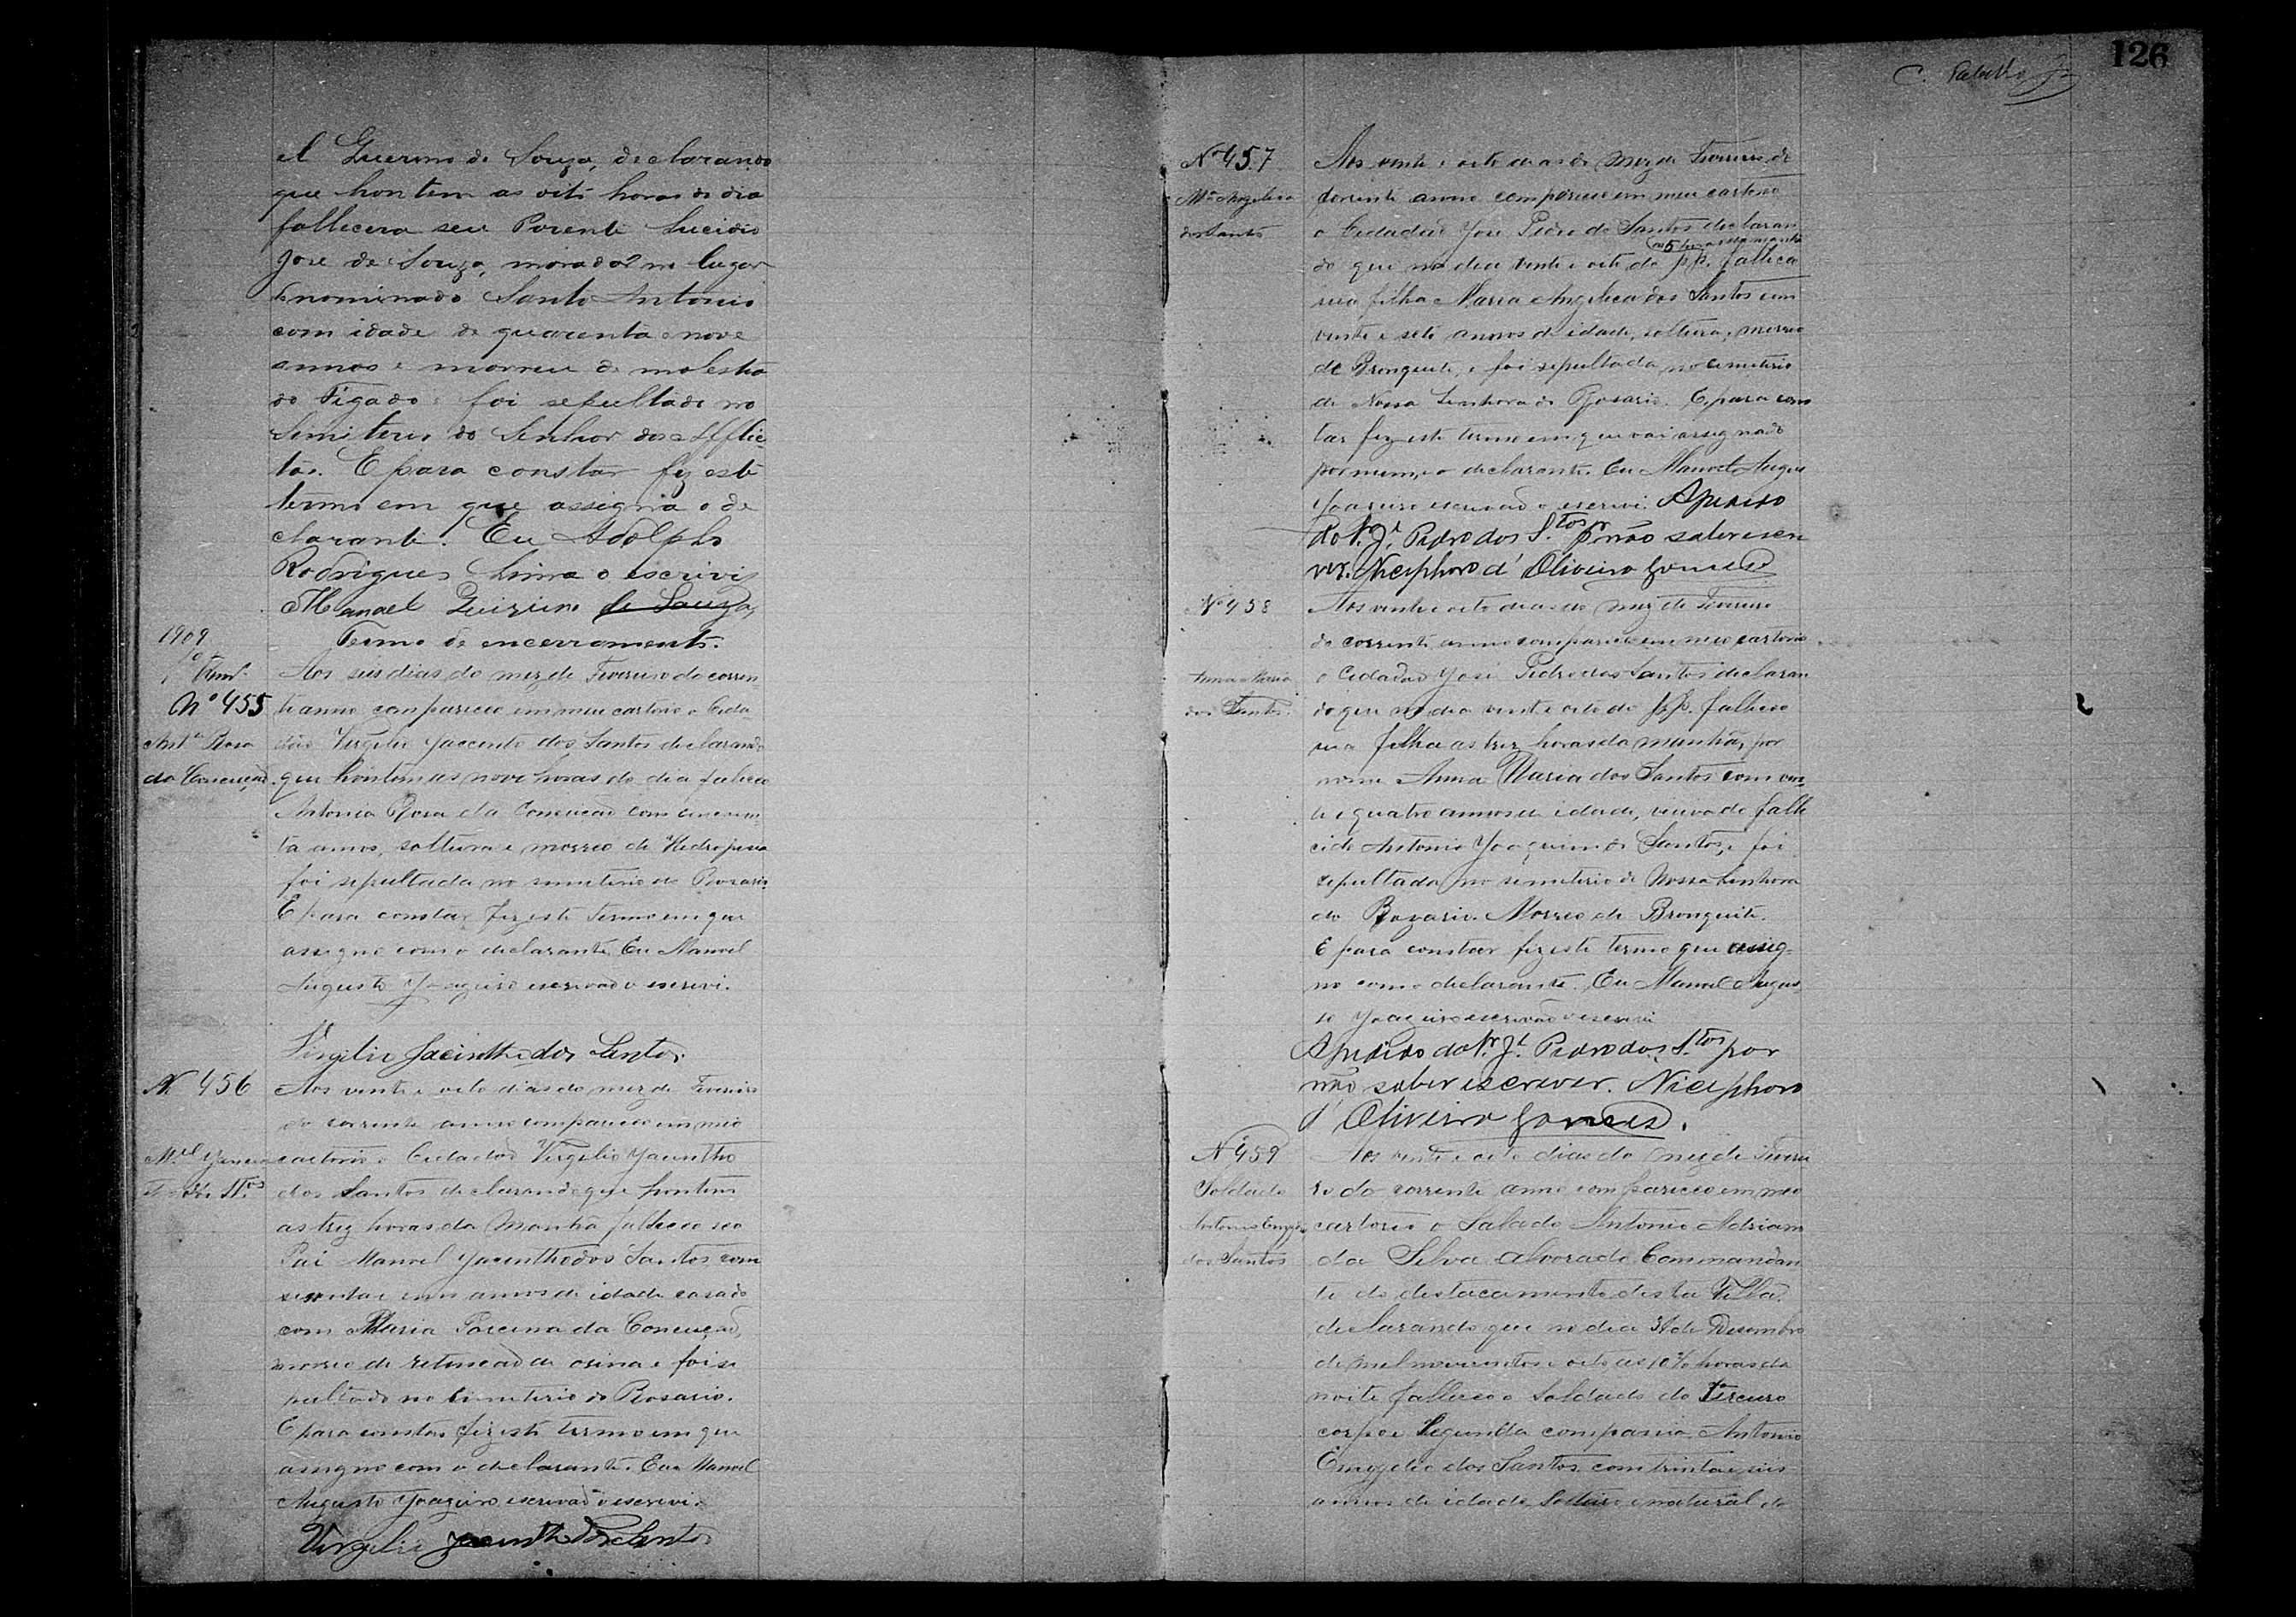 el Guerino de Souza, declarando
que hontem as oito horas do dia
fallecera seu Parente Lucidio
Jose de Souza, morador no lugar
denominado Santo Antonio
com idade de quarenta e nove
annos e morreu de molestia
do Figado e foi sepultado no
Simiterio do Senhor dos Afflic-
tos. E para constar fiz este
termo em que assigna o de
clarante. Eu Adolpho
Rodrigues Lima o escrivi
Manoel Quirino de Souza,
Termo de encerramento.
1909
Nº 455
Antª Rosa
da Conceição
Aos seis dias do mez de Fevereiro do corren-
te anno, compareceo em meu cartorio o Cida-
dão Virgilio Jaccinto dos Santos declarando
que hontem as nove horas do dia faleceo
Antonia Rosa da Conceicão com cincoen-
ta annos, solteira e morreo de Hedropesia
foi sepultada no simiterio do Rosario.
E para constar fiz este termo em que
assigno com o declarante. Eu Manoel
Augusto Joazeiro escrivão o escrevi.
Virgilio Jacintho dos Santos.
N 456
Mel
dos Stos
Aos vinte e oito dias do mez de Fevereiro
do corrente anno compareceo em meo
cartorio o Cidadão Virgilio Jacintho
dos Santos declarando que hontem
as trez horas da Manhã falleceo seo
Pai Manoel Jacintho dos Santos com
annos de idade casado
com Maria Porcina da Conceição,
morreo de retencão de orina e foi se
pultado no Cimiterio do Rosario.
E para constar fiz este termo em que
assigno com o declarante. Eu Manoel
Augusto Joazeiro escrivão o escrevi.
Virgilio Jacintho dos Santos
126
C.
Nº 457
Mª Angelica
dos Santos
Aos vinte e oito dias do mez de Fevereiro do
corrente anno compareceo em meu cartorio
o Cidadão José Pedro do Santos declaran
as 5 horas da manhã
do que no dia vinte e oito do p.p. falleceo
sua filha Maria Angelica dos Santos com
vinte e sete annos de idade, solteira, morreo
de Bronquite, e foi sepultada no cimiterio
de Nossa Senhora do Rosario. E para cons
tar fiz este termo em que vai assignado
por mim, e o declarante. Eu Manoel Augus
Joazeiro escrivão o escrevi. Apedido
do Sr. Jé. Pedro dos S.tos pr não saber escre
ver. Nicephoro d' Oliveira Gomes
Nº 458
Anna Maria
dos Santos.
Aos vinte e oito dias do mez de Fevereiro
do corrente anno compareceo em meo cartorio
o Cidadão José Pedro dos Santos declaran
do que no dia vinte e oito do p.p. falleceo
sua filha as trez horas da manhã, por
nome Anna Maria dos Santos com vin-
te e quatro annos de idade, viuva do falle
cido Antonio Joaquim dos Santos, e foi
sepultada no simiterio de Nossa Senhora
do Rozario. Morreo de Bronquite.
E para constar fiz este termo que assig-
no com o declarante. Eu Manoel Augus-
to Joazeiro escrivão o escrevi
Apedido do Sr Jé. Pedro dos S.tos por
não saber escrever. Nicephoro
d' Oliveira Gomes.
Nº 459
Soldado
Antonio Emygdio
dos Santos
Aos vinte e oito dias do mez de Feverei
ro do corrente anno compareceo em meo
cartorio o Soldado Antonio Adriano
da Silva Alvorado Commandan
te do destacamento desta Villa.
declarando que no dia 31 de Desembro
de mil novecentos e oito as 10 ½ horas da
noite falleceo o Soldado do Terceiro
corpo e Segunda companhia Antonio
Emygdio dos Santos, com trinta e seis
annos de idade, Solteiro e natural do